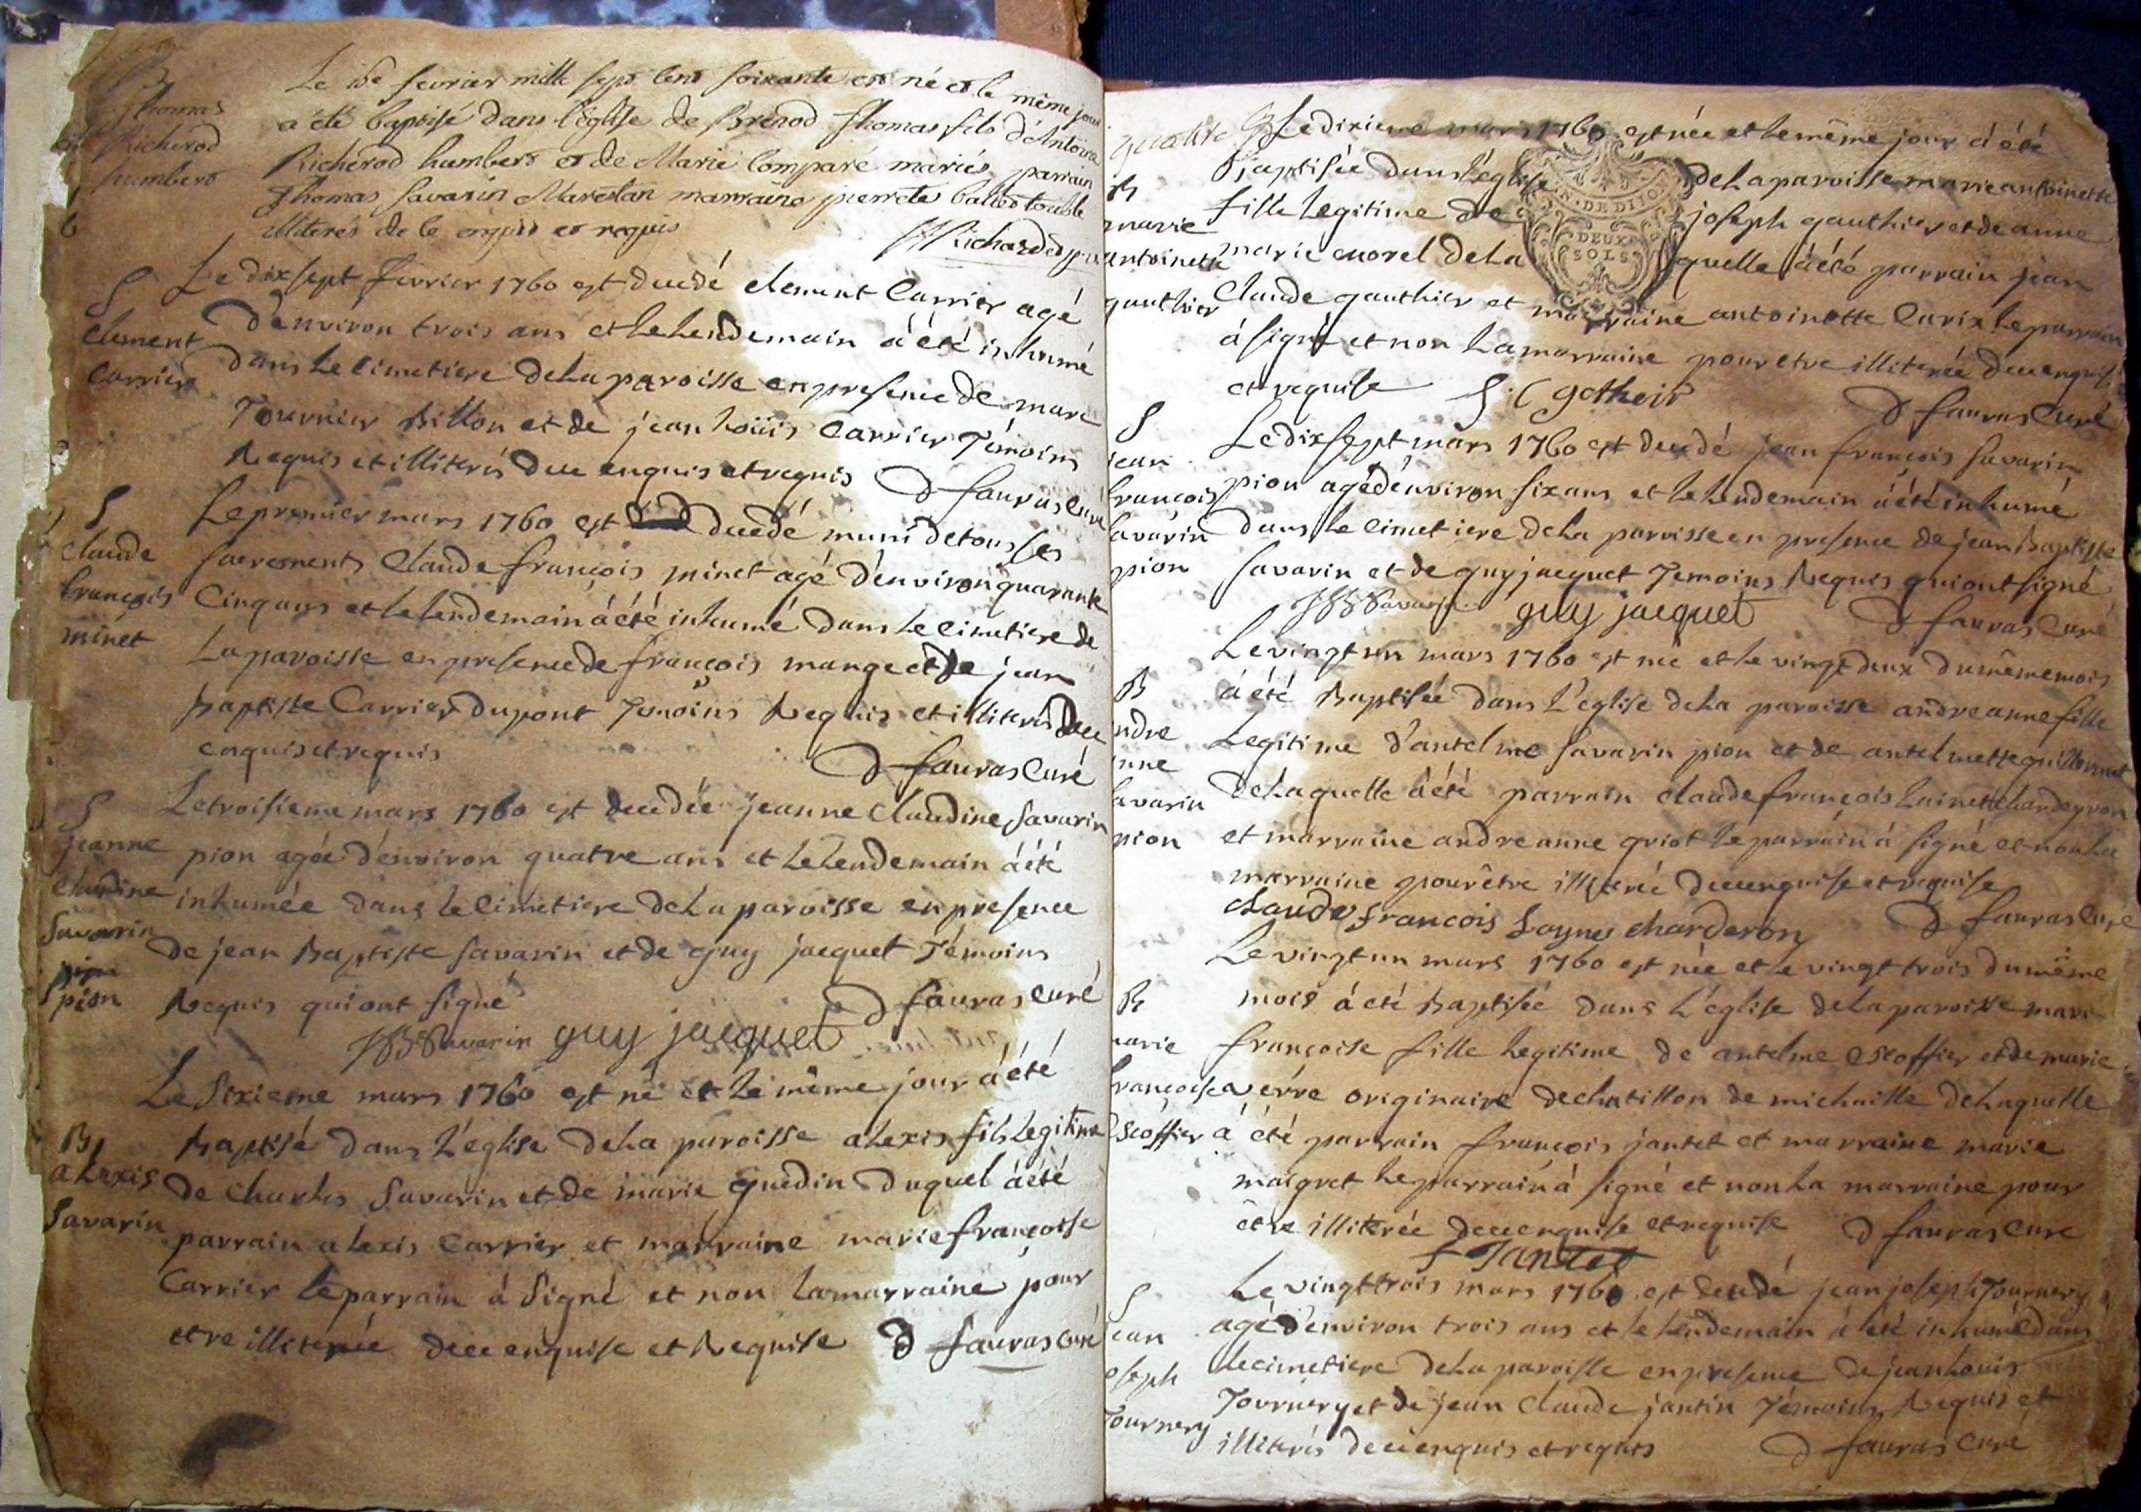 B
Thomas
Richerod
humbert
Le 10e fevrier mille sept cent soixante est né et le même jour
a été baptisé dans l'église de Brenod Thomas fils d'Antoine
Richerod humbert et de Marie Comparé mariés parrain
Thomas Savarin Marestan marraine pierrete ballet tous
illiterés de ce enquis et requis
6
S
clement
Carrier
Le dix sept fevrier 1760 est decedé clement Carrier agé
d'environ trois ans et le lendemain á été inhumé
dans le cimetiere de la paroisse en presence de marc
Tournier Billon et de jean loüis Carrier Témoins
Requis et illiterés de ce enquis et requis D fauras Curé
S
claude
françois
minet
Le premier mars 1760 est decedé muni de tous ses
sacrements Claude françois minet agé d'environ quarante
Cinq ans et le lendemain á été inhumé dans le cimetiere de
La paroisse en presence de françois mange et de jean
Baptiste Carrier dupont Temoins Requis et illiterés de ce
enquis et requis
D fauras Curé
S
jeanne
claudine
Savarin
pion
Le troisieme mars 1760 est decedée jeanne Claudine Savarin
pion agée d'environ quatre ans et le lendemain á été
inhumée dans le cimetiere de La paroisse en presence
de jean Baptiste Savarin et de guy jacquet Témoins
Requis qui ont signé D fauras curé
JB Savarin guy jacquet
B
alexis
Savarin
Le Sixieme mars 1760 est né et le même jour á été
Baptisé dans L'église de La paroisse alexis fils legitime
de Charles Savarin et de marie guedin duquel á été
parrain alexis Carrier et marraine marie françoise
Carrier le parrain á signé et non la marraine pour
etre illiterée de ce enquise et Requise D fauras Curé
quatre
B
marie
antoinette
gauthier
Le dixieme mars 1760 est née et le même jour á été
Baptisée dans L'église de La paroisse marie antoinette
fille legitime de joseph gauthier et de anne
marie morel de La quelle á été parrain jean
Claude gauthier et marraine antoinette Carix le parrain
á signé et non La marraine pour etre illiterée de ce enquise
et requise D fauras Curé
DE DIJON
DEUX
SOLS
S
jean
françois
Savarin
pion
Le dix sept mars 1760 est decedé jean françois Savarin
pion agé d'environ six ans et le lendemain á été inhumé
dans le cimetiere de La paroisse en presence de jean Baptiste
Savarin et de guy jacquet Temoins Requis qui ont signé
JB Savarin guy jacquet D fauras Curé
B
andre
anne
Savarin
pion
Le vingt un mars 1760 est née et le vingt deux du même mois
á été Baptisée dans L'église de La paroisse andre anne fille
Legitime d'antelme Savarin pion et de antelmette
de La quelle á été parrain claude françois Lainet chardeyron
et marraine andre anne griot le parrain á signé et non La
marraine pour être illiterée de ce enquise et requise
claude francois Layne charderon D fauras curé
B
marie
françoise
Escoffier
Le vingt un mars 1760 est née et le vingt trois du même
mois á été Baptisée dans L'église de La paroisse marie
françoise fille legitime de antelme escoffier et de marie
verre originaire de chatillon de michaille de La quelle
á été parrain françois jantet et marraine marie
maigret le parrain á signé et non La marraine pour
être illiterée de ce enquise et requise D fauras Curé
f Jantet
S
jean
joseph
Tournery
Le vingt trois mars 1760 est decedé jean joseph Tournery
agé d'environ trois ans et le lendemain á été inhumé dans
Le cimetiere de La paroisse en presence de jean Louis
Tournery et de jean Claude jantin Témoins Requis et
illiterés de ce enquis et requis D fauras Curé